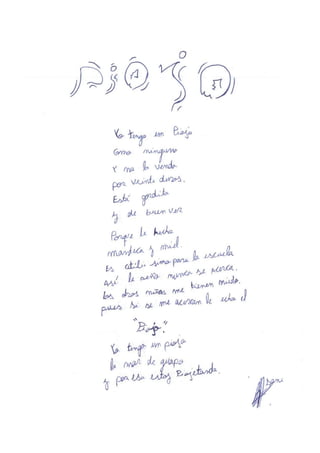 Yo tengo un Piojo
Como ninguno
Y no lo vendo
por veinte duros.
Está gordito
y de buen ver
Porque le echo
manteca y miel.
Es utilísimo para la escuela
así le acño nunca se acerca.
los otros niños me tienen miedo.
pues si se me acercan le echo el
"Piojo".
Yo tengo un piojo
la mar de guapo
y por eso estoy Piojetando.